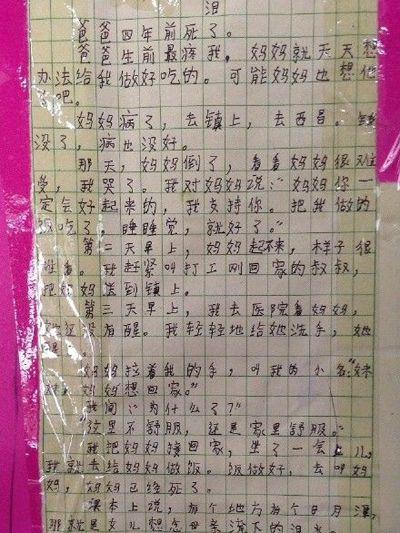 泪
爸爸四年前死了。
爸爸生前最疼我，妈妈就天天想
办法给我做好吃的。可能妈妈也想他
了吧。
妈妈病了，去镇上，去西昌。钱
没了，病也没好。
那天，妈妈倒了，看看妈妈很难
受，我哭了。我对妈妈说："妈妈你一
定会好起来的，我支持你。把我做的
饭吃了，睡睡觉，就好了。"
第二天早上，妈妈起不来，样子很
难看。我赶紧叫打工刚回家的叔叔，
把妈妈送到镇上。
第三天早上，我去医院看妈妈，
她还没有醒。我轻轻地给她洗手，她
醒了。
妈妈拉着我的手，叫我的小名："妹
妈妈想回家。"
我问："为什么了？"
"这里不舒服，还是家里舒服。"
我把妈妈接回家，坐了一会儿，
我就去给妈妈做饭。饭做好，去叫妈
妈，妈妈已经死了。
课本上说，有个地方有个日月潭，
那就是女儿想念母亲流下的泪水。